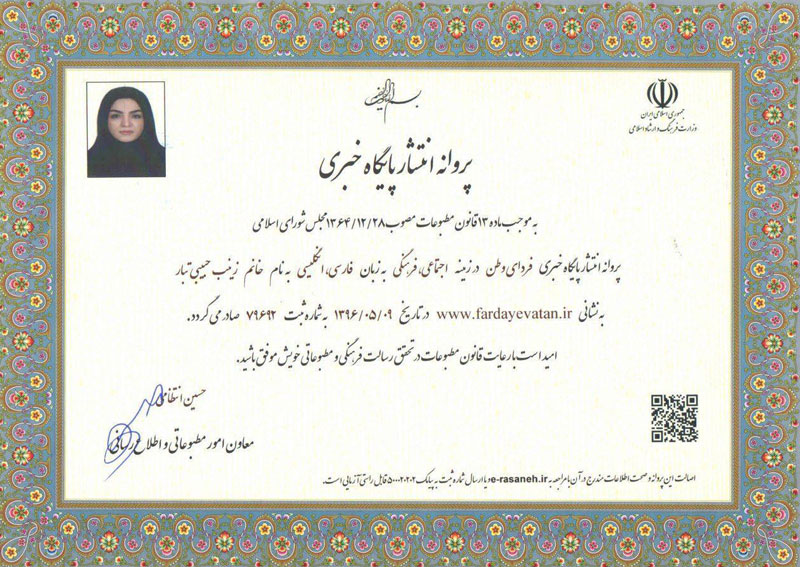 بسم الله الرحمن الرحیم
جمهوری اسلامی ایران
وزارت فرهنگ و ارشاد اسلامی
پروانه انتشار پایگاه خبری
به موجب ماده ۱۳ قانون مطبوعات مصوب ۱۳۶۴/۱۲/۲۸ مجلس شورای اسلامی
پروانه انتشار پایگاه خبری فردای وطن در زمینه اجتماعی، فرهنگی به زبان فارسی، انگلیسی به نام خانم زینب حبیبی تبار
به نشانی www.fardayevatan.ir در تاریخ ۱۳۹۶/۰۵/۰۹ به شماره ثبت ۷۹۶۹۲ صادر می گردد.
امید است با رعایت قانون مطبوعات در تحقق رسالت فرهنگی و مطبوعاتی خویش موفق باشید.
حسین انتظامی
معاون امور مطبوعاتی و اطلاع رسانی
اصالت این پروانه و صحت اطلاعات مندرج در آن با مراجعه به e-rasaneh.ir و یا ارسال شماره ثبت به پیامک ۵۰۰۰۲۰۲۰۲ قابل راستی آزمایی است.